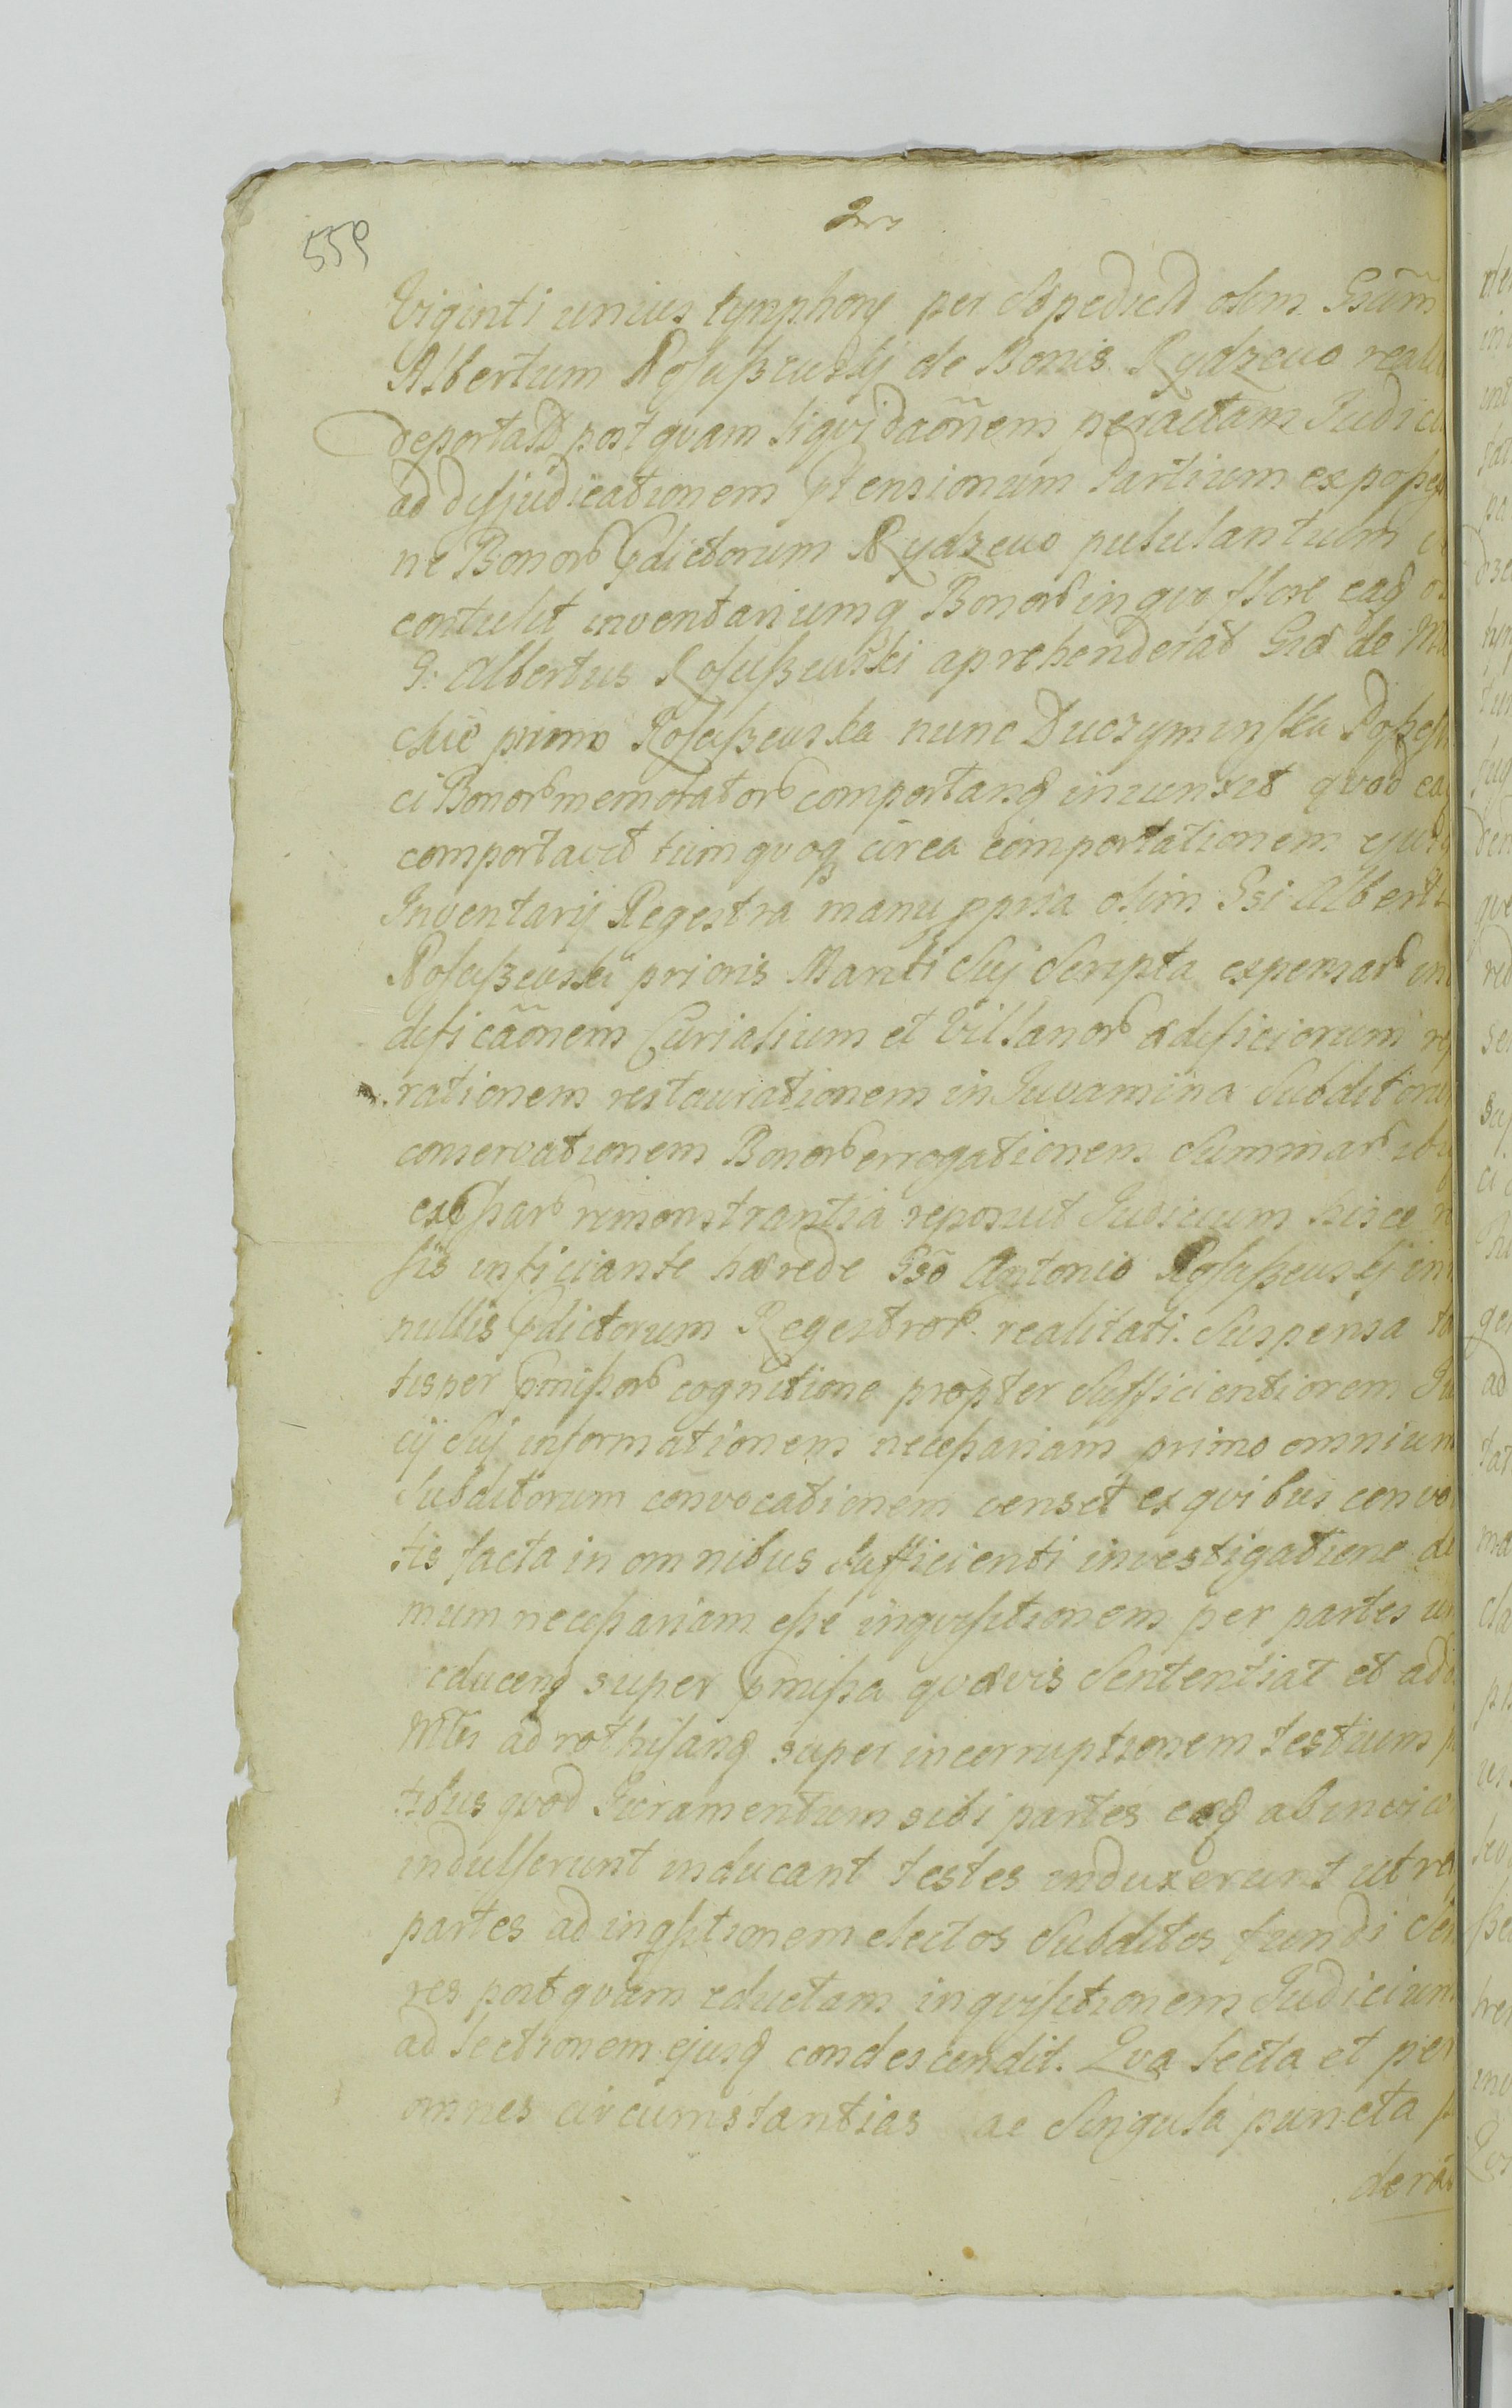 559
Viginti unius tynphony per olim Gsum
Albertum Rosaßewskij de Bonis Rydzewo reali
deportass postquam liqvidaõnem peractam Judici
ad disjudicationem ptensionum Partium ex poßes
ne Bonor pdictorum Rydzewo pululantium
contulit inventariumq Bonor in qvo flore eaq
G: Albertus Rosaßewski aprehenderat Gsa de
chie primo Rosaßewska nunc Duczyminska Poßess
ci Bonor memorator comportanq iniunxit qvod ea
comportavit tum qvoq circa comportationem ejusq
Inventarij Regestra manu ppria olim Gsi Alberti
Rosaßewski prioris Mariti Suj Scripta expensar in
dificãonem Curialium et Villanor ædificiorum
rationem restaurationem in Juvamina Subditoru
conservationem Bonor errogationem Summar
remonstrantia reposuit Judicium hisce
sis inficiante hærede Gso Antonio Rosaßewskj in
nullis pdictorum Regestror realitati. Suspensa
tisper pmißor cognitione propter Sufficientiorem
cij Suj informationem neceßariam primo omnium
Subditorum convocationem censet ex qvibus convo
tis facta in omnibus Sufficienti investigatione de
mum neceßariam eße inqvisitionem per partes
educenq super pmißa qvævis Sententiat et
Mtis ad rothisanq super incorruptionem testium
tibus qvod Juramentum sibi partes eaq ab invice
indulserunt inducant testes induxerunt
partes ad inqsitionem electos Subditos fundi
res postqvam eductam inqvisitionem Judicium
ad lectionem ejusq condescendit. Qva lecta et per
omnes circumstantias ac Singula puncta